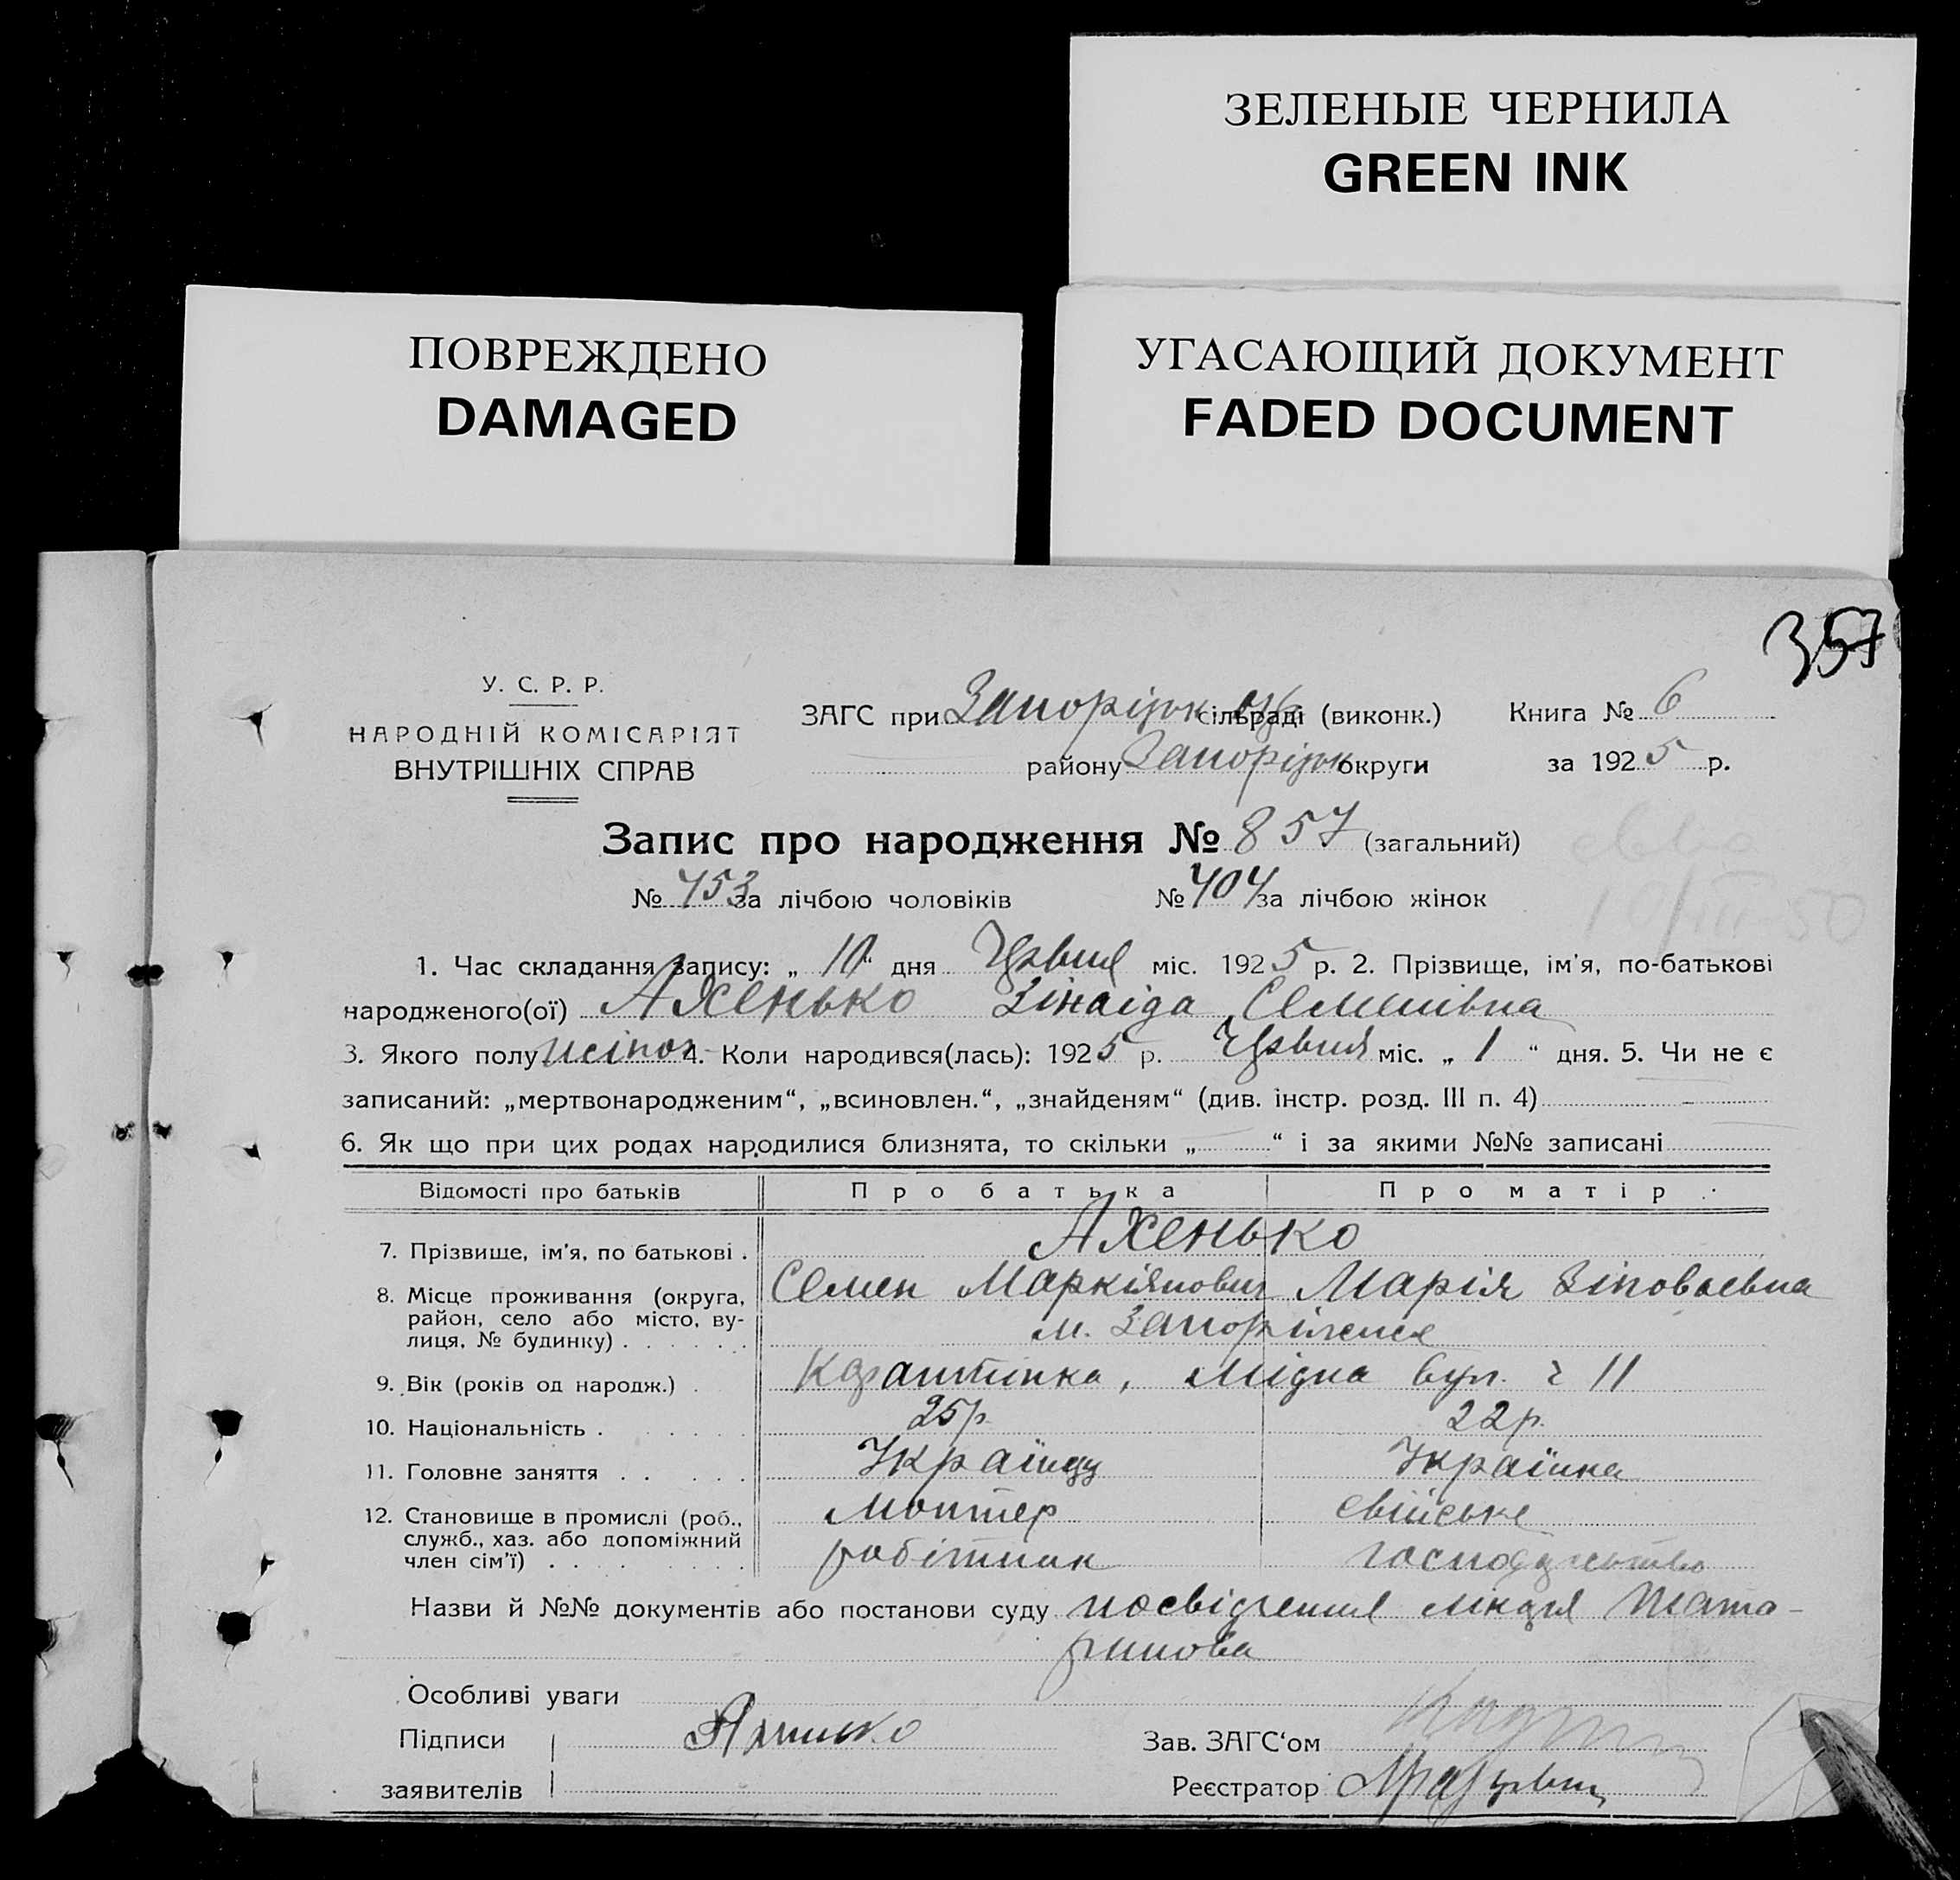 ЗЕЛЕНЫЕ ЧЕРНИЛА
GREEN INK
ПОВРЕЖДЕНО
DAMAGED
УГАСАЮЩИЙ ДОКУМЕНТ
FADED DOCUMENT
357
У. С. Р. Р.
НАРОДНІЙ КОМІСАРІЯТ
ВНУТРІШНІХ СПРАВ
ЗАГС при Запоріжк сільраді (виконк.) Книга № 6
району Запоріжк округи за 1925 р.
Запис про народження № 857 (загальний)
№ 453 за лічбою чоловіків № 404 за лічбою жінок
10/III-50
1. Час складання запису: „ 10 “ дня Червня міс. 1925 р. 2. Прізвище, ім'я, по-батькові
народженого(ої) Ахенько Зінаіда Семенівна
3. Якого полу жіноч 4. Коли народився(лась): 1925 р. Червня міс. „ 1 “ дня. 5. Чи не є
записаний: „мертвонародженим“, „всиновлен.“, „знайденям“ (див. інстр. розд. III п. 4)
6. Як що при цих родах народилися близнята, то скільки „ “ і за якими №№ записані
Відомості про батьків Про батька Про матір
Ахенько
7. Прізвище, ім'я, по батькові .
Семен Маркіянович Марія Зіноваевна
8. Місце проживання (округа,
район, село або місто, ву-
лиця, № будинку) . . . . . .
м. Запоріжжя
Карантінка, Мідна вул. ч 11
9. Вік (років од народж.) .
25р. 22р.
10. Національність . . . . . .
Українец Українка
11. Головне заняття . . . . .
монтер свійське
12. Становище в промислі (роб.,
служб., хаз. або допоміжний
член сім'ї) . . . . . . . .
робітник господарство
Назви й №№ документів або постанови суду посвідчення лікаря Тата-
ринова
Особливі уваги
Підписи
заявителів
Зав. ЗАГС‘ом
Реєстратор